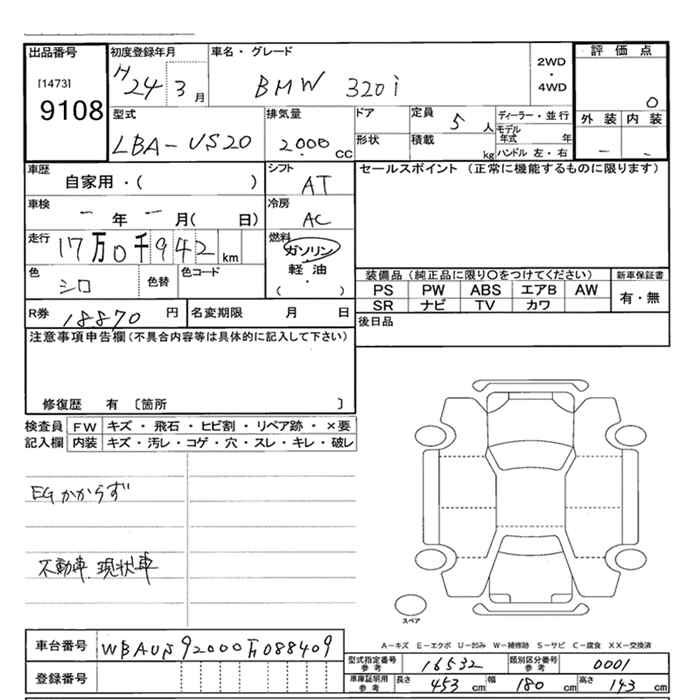 出品番号 初度登録年月 車名・グレード 評価点
[1473] H24 3月 BMW 320i 2WD・4WD 0
9108
型式 排気量 ドア 定員 5人 ディーラー・並行 外装 内装
LBA-US20 2000cc 形状 積載 kg モデル年式 年 - -
ハンドル 左・右
車歴 シフト セールスポイント (正常に機能するものに限ります)
自家用・( ) AT
車検 冷房
-年-月( 日) AC
走行 燃料
17万0千942km ガソリン
色 色替 色コード 軽油・
シロ ( ) 装備品(純正品に限り○をつけてください) 新車保証書
PS PW ABS エアB AW 有・無
SR ナビ TV カワ
R券 18870円 名変期限 月 日 後日品
注意事項申告欄(不具合内容等は具体的に記入して下さい)
修復歴 有 〔箇所 〕
検査員 FW キズ・飛石・ヒビ割・リペア跡・×要
記入欄 内装 キズ・汚レ・コゲ・穴・スレ・キレ・破レ
EGかからず
不動車.現状車
スペア
A－キズ E－エクボ U－凹み W－補修跡 S－サビ C－腐食 XX－交換済
車台番号
型式指定番号 参考 16532 類別区分番号 参考 0001
登録番号 車庫証明用 参考 長さ 453cm 幅 180cm 高さ 143cm